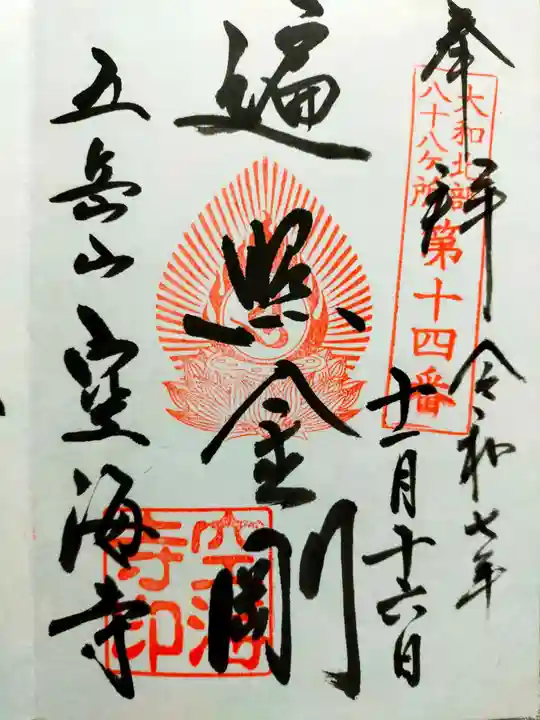 奉拝
大和北部
八十八ヶ所
第十四番
令和七年
十一月十六日
遍照金剛
五岳山空海寺
空海
寺印